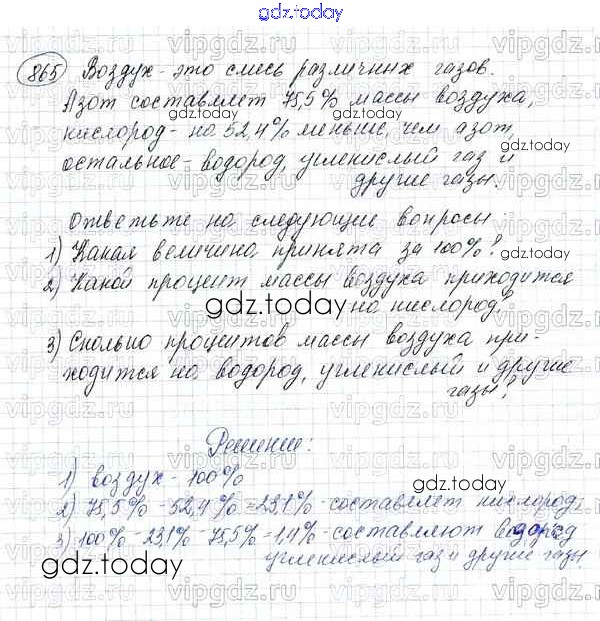 gdz.today
865 Воздух - это смесь различных газов.
Азот составляет 75,5% массы воздуха,
кислород - на 52,4% меньше, чем азот,
остальное - водород, углекислый газ и
другие газы.
Ответьте на следующие вопросы:
1) Какая величина принята за 100%?
2) Какой процент массы воздуха приходится
на кислород?
3) Сколько процентов массы воздуха при-
ходится на водород, углекислый и другие
газы?
Решение:
1) воздух - 100%
2) 75,5% - 52,4% = 23,1% - составляет кислород;
3) 100% - 23,1% - 75,5% = 1,4% - составляют водород
углекислый газ и другие газы.